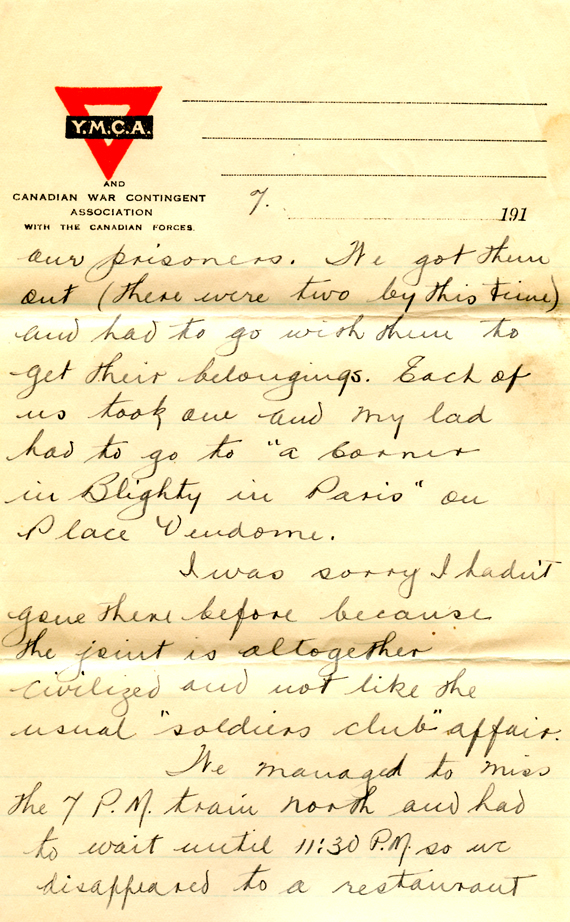 Y.M.C.A.
AND
CANADIAN WAR CONTINGENT
ASSOCIATION
WITH THE CANADIAN FORCES.
7. 191
our prisoners. We got them
out (there were two by this time)
and had to go with them to
get their belongings. Each of
us took one and my lad
had to go to "a Corner
in Blighty in Paris" on
Place Vendome.
I was sorry I hadn't
gone there before because
the joint is altogether
civilized and not like the
usual "soldiers club" affair.
We managed to miss
the 7 P.M. train north and had
to wait until 11:30 P.M. so we
disappeared to a restaurant